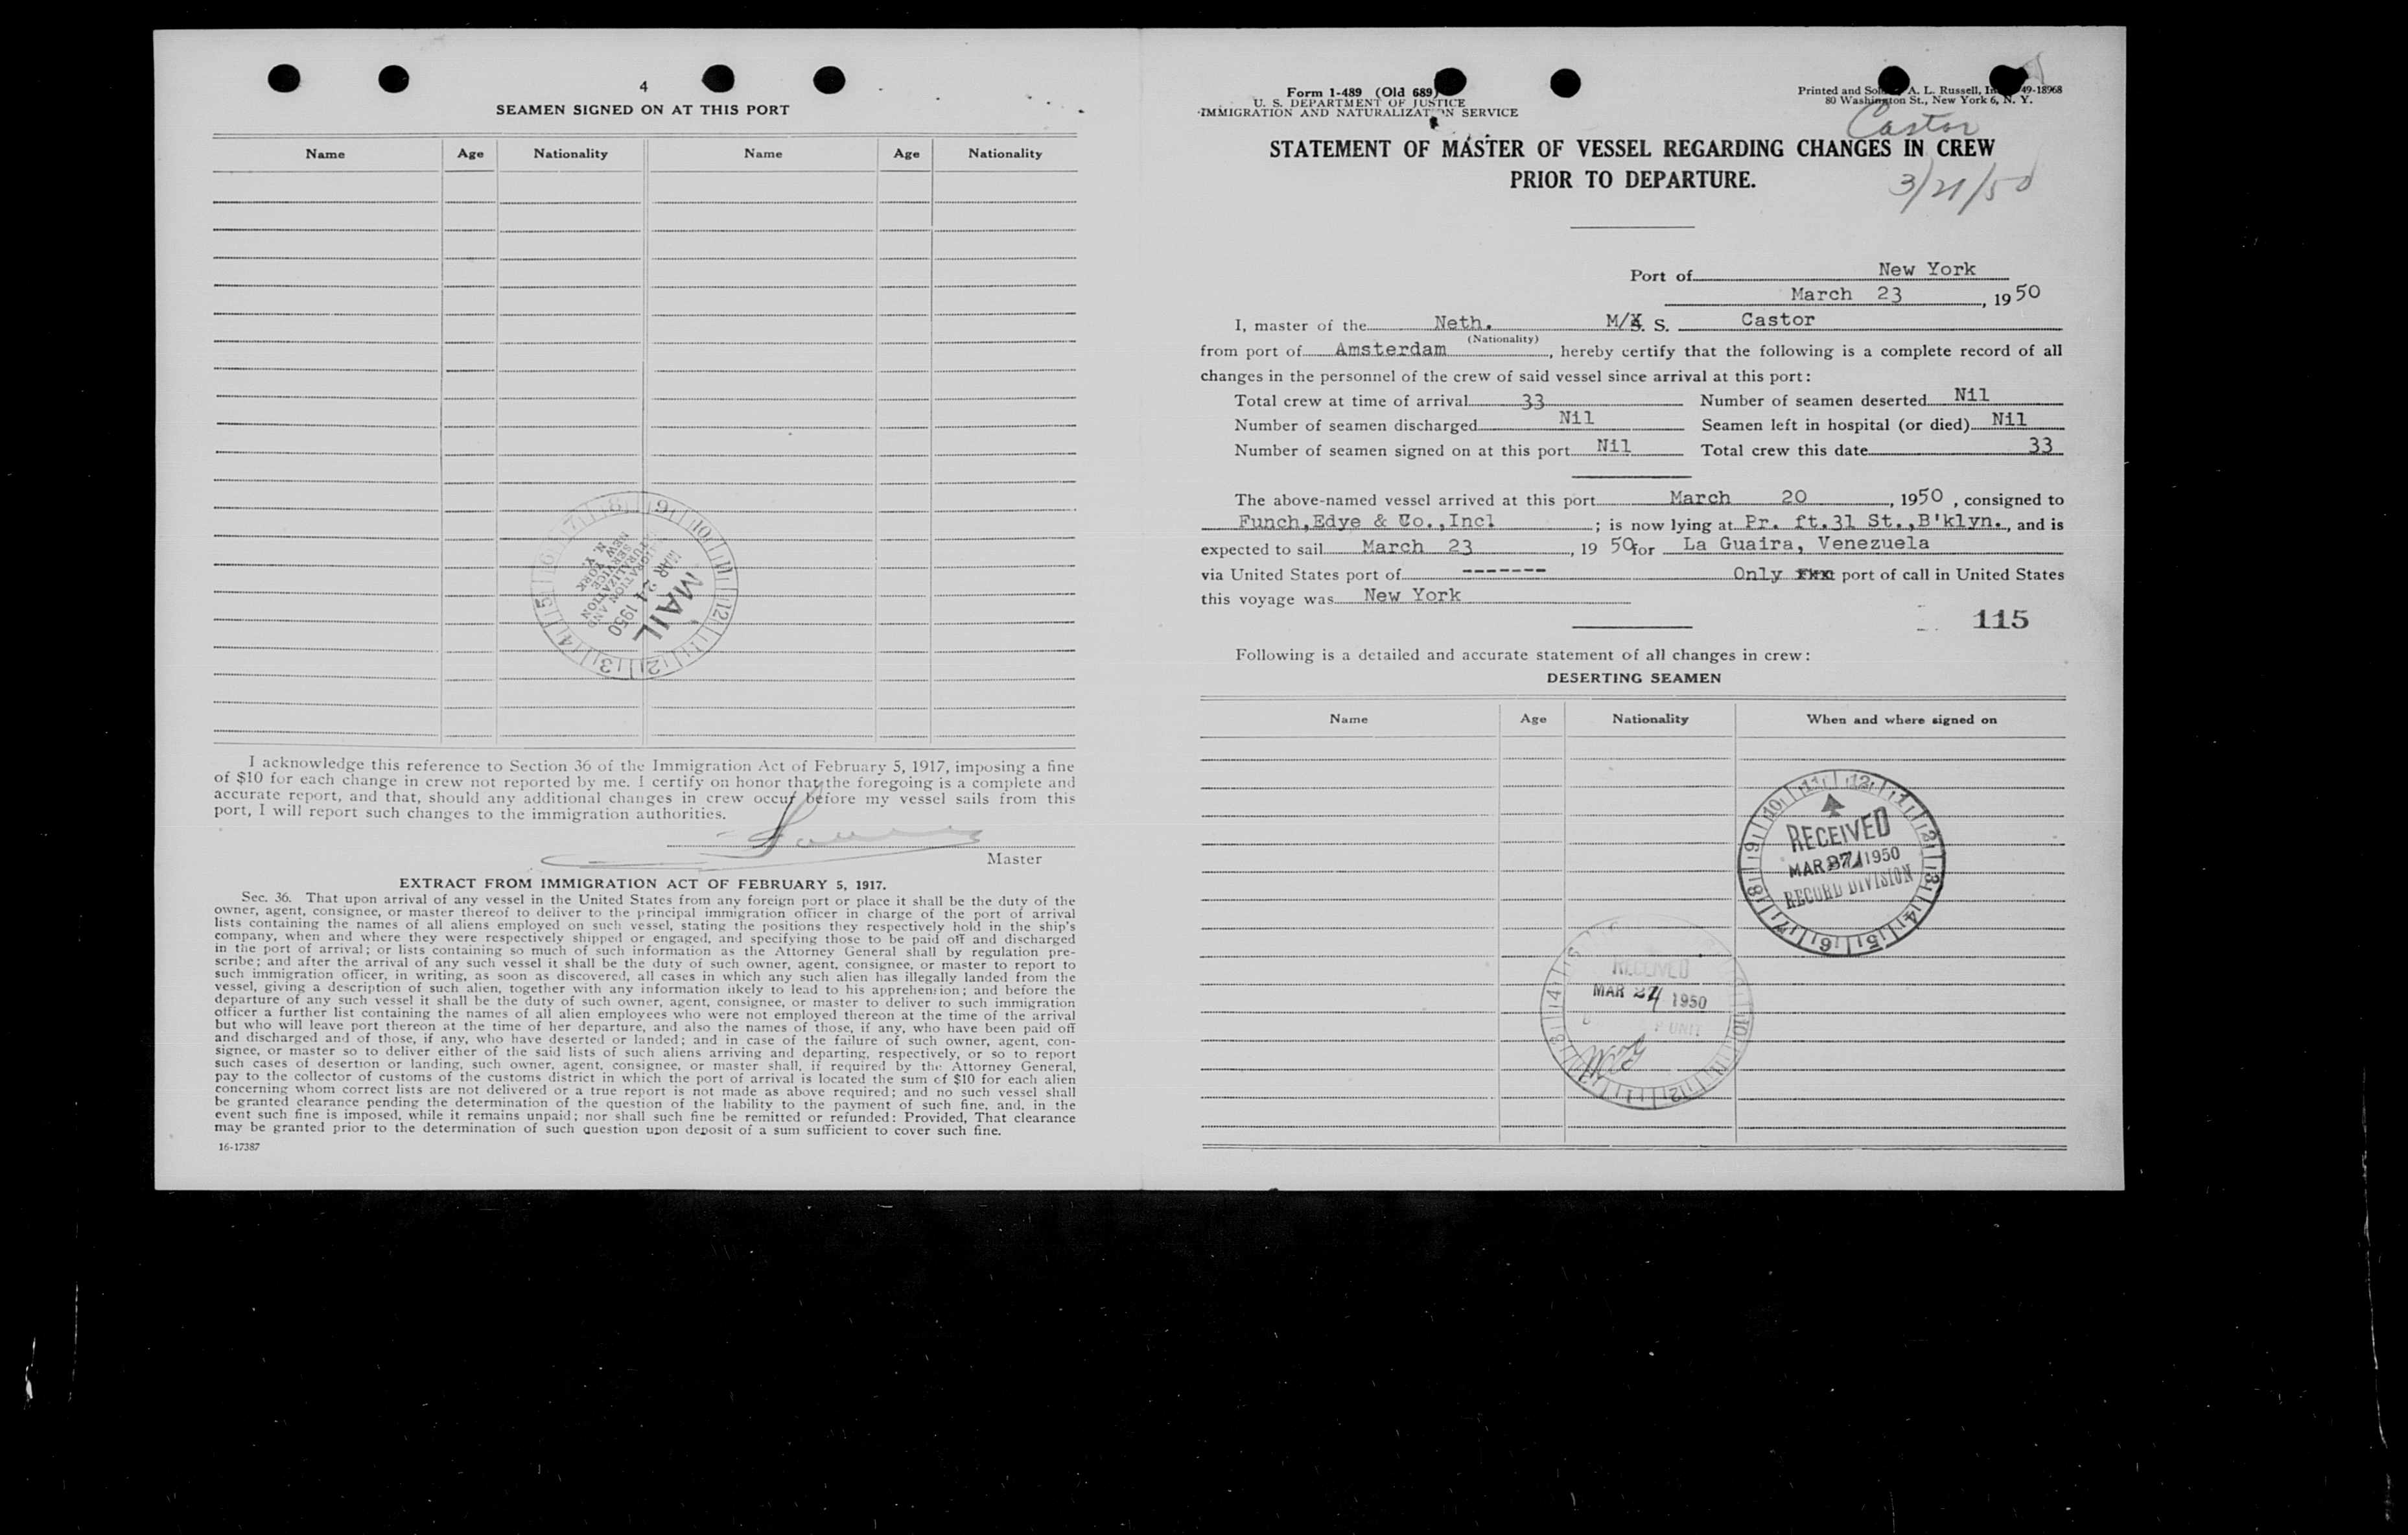 4
SEAMEN SIGNED ON AT THIS PORT
Name Age Nationality Name Age Nationality
MAIL
MAR 24 1950
IMMIGRATION AND
NATURALIZATION
SERVICE
NEW YORK
N. Y.
I acknowledge this reference to Section 36 of the Immigration Act of February 5, 1917, imposing a fine
of $10 for each change in crew not reported by me. I certify on honor that the foregoing is a complete and
accurate report, and that, should any additional changes in crew occur before my vessel sails from this
port, I will report such changes to the immigration authorities.
Master
EXTRACT FROM IMMIGRATION ACT OF FEBRUARY 5, 1917.
Sec. 36. That upon arrival of any vessel in the United States from any foreign port or place it shall be the duty of the
owner, agent, consignee, or master thereof to deliver to the principal immigration officer in charge of the port of arrival
lists containing the names of all aliens employed on such vessel, stating the positions they respectively hold in the ship's
company, when and where they were respectively shipped or engaged, and specifying those to be paid off and discharged
in the port of arrival; or lists containing so much of such information as the Attorney General shall by regulation pre-
scribe; and after the arrival of any such vessel it shall be the duty of such owner, agent, consignee, or master to report to
such immigration officer, in writing, as soon as discovered, all cases in which any such alien has illegally landed from the
vessel, giving a description of such alien, together with any information likely to lead to his apprehension; and before the
departure of any such vessel it shall be the duty of such owner, agent, consignee, or master to deliver to such immigration
officer a further list containing the names of all alien employees who were not employed thereon at the time of the arrival
but who will leave port thereon at the time of her departure, and also the names of those, if any, who have been paid off
and discharged and of those, if any, who have deserted or landed; and in case of the failure of such owner, agent, con-
signee, or master so to deliver either of the said lists of such aliens arriving and departing, respectively, or so to report
such cases of desertion or landing, such owner, agent, consignee, or master shall, if required by the Attorney General,
pay to the collector of customs of the customs district in which the port of arrival is located the sum of $10 for each alien
concerning whom correct lists are not delivered or a true report is not made as above required; and no such vessel shall
be granted clearance pending the determination of the question of the liability to the payment of such fine, and, in the
event such fine is imposed, while it remains unpaid; nor shall such fine be remitted or refunded: Provided, That clearance
may be granted prior to the determination of such question upon deposit of a sum sufficient to cover such fine.
16-17387
Form 1-489 (Old 689)
U. S. DEPARTMENT OF JUSTICE
IMMIGRATION AND NATURALIZATION SERVICE
Printed and Sold A. L. Russell, 49-18968
80 Washington St., New York 6, N. Y.
Castor
STATEMENT OF MASTER OF VESSEL REGARDING CHANGES IN CREW
PRIOR TO DEPARTURE.
3/21/50
Port of New York
March 23, 1950
I, master of the Neth. M/S. S. Castor
(Nationality)
from port of Amsterdam, hereby certify that the following is a complete record of all
changes in the personnel of the crew of said vessel since arrival at this port:
Total crew at time of arrival 33 Number of seamen deserted Nil
Number of seamen discharged Nil Seamen left in hospital (or died) Nil
Number of seamen signed on at this port Nil Total crew this date 33
The above-named vessel arrived at this port March 20, 1950, consigned to
Funch,Edye & Co.,Incl ; is now lying at Pr. ft.31 St.,B'klyn., and is
expected to sail March 23, 19 50 for La Guaira, Venezuela
via United States port of ------- Only port of call in United States
this voyage was New York
115
Following is a detailed and accurate statement of all changes in crew:
DESERTING SEAMEN
Name Age Nationality When and where signed on
RECEIVED
MAR 27 1950
RECORD DIVISION
RECEIVED
MAR 24 1950
UNIT